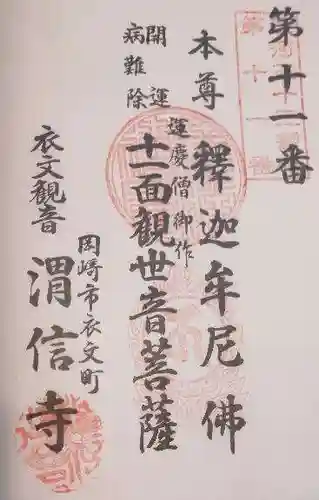 第十一番
本尊 釋迦牟尼佛
運慶僧御作
開運
病難除
十一面観世音菩薩
衣文観音
岡崎市衣文町
渭信寺